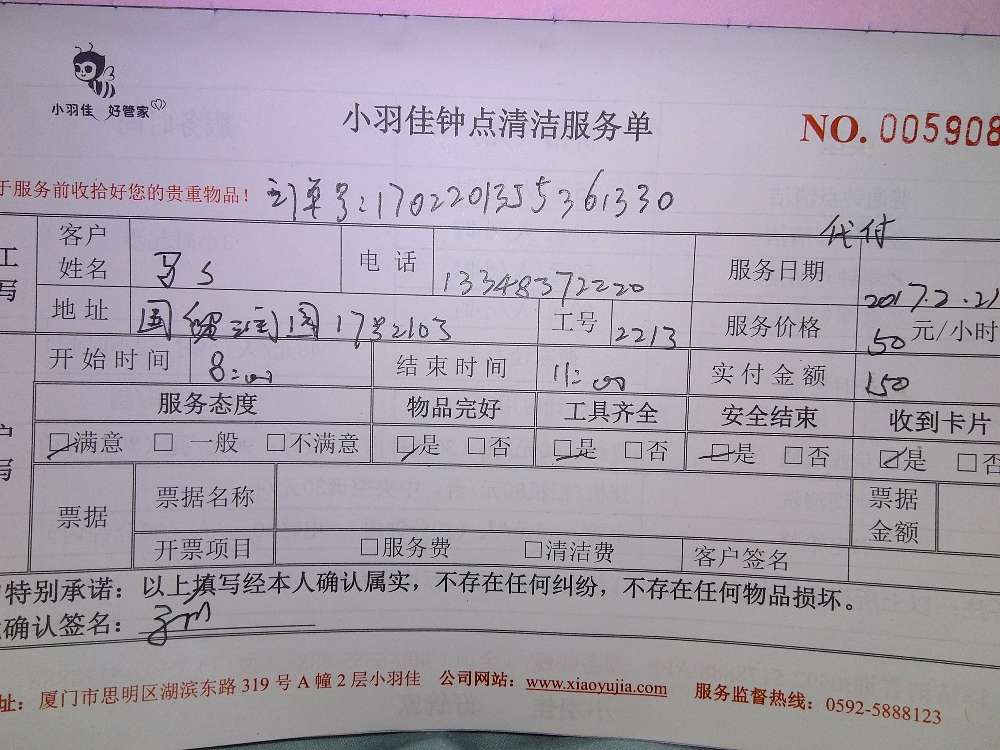 小羽佳 好管家
小羽佳钟点清洁服务单
NO. 005908
于服务前收拾好您的贵重物品！ 订单号:1702201355361330
代付
客户姓名 电话 13348372220 服务日期 2017.2.21
地址 17号2103 工号 2213 服务价格 50元/小时
开始时间 8:00 结束时间 11:00 实付金额 150
服务态度 物品完好 工具齐全 安全结束 收到卡片
☑满意 □一般 □不满意 ☑是 □否 ☑是 □否 ☑是 □否 ☑是 □否
票据 票据名称 票据金额
开票项目 □服务费 □清洁费 客户签名
特别承诺：以上填写经本人确认属实，不存在任何纠纷，不存在任何物品损坏。
确认签名：
址：厦门市思明区湖滨东路 319 号 A 幢 2 层小羽佳 公司网站：www.xiaoyujia.com 服务监督热线：0592-5888123